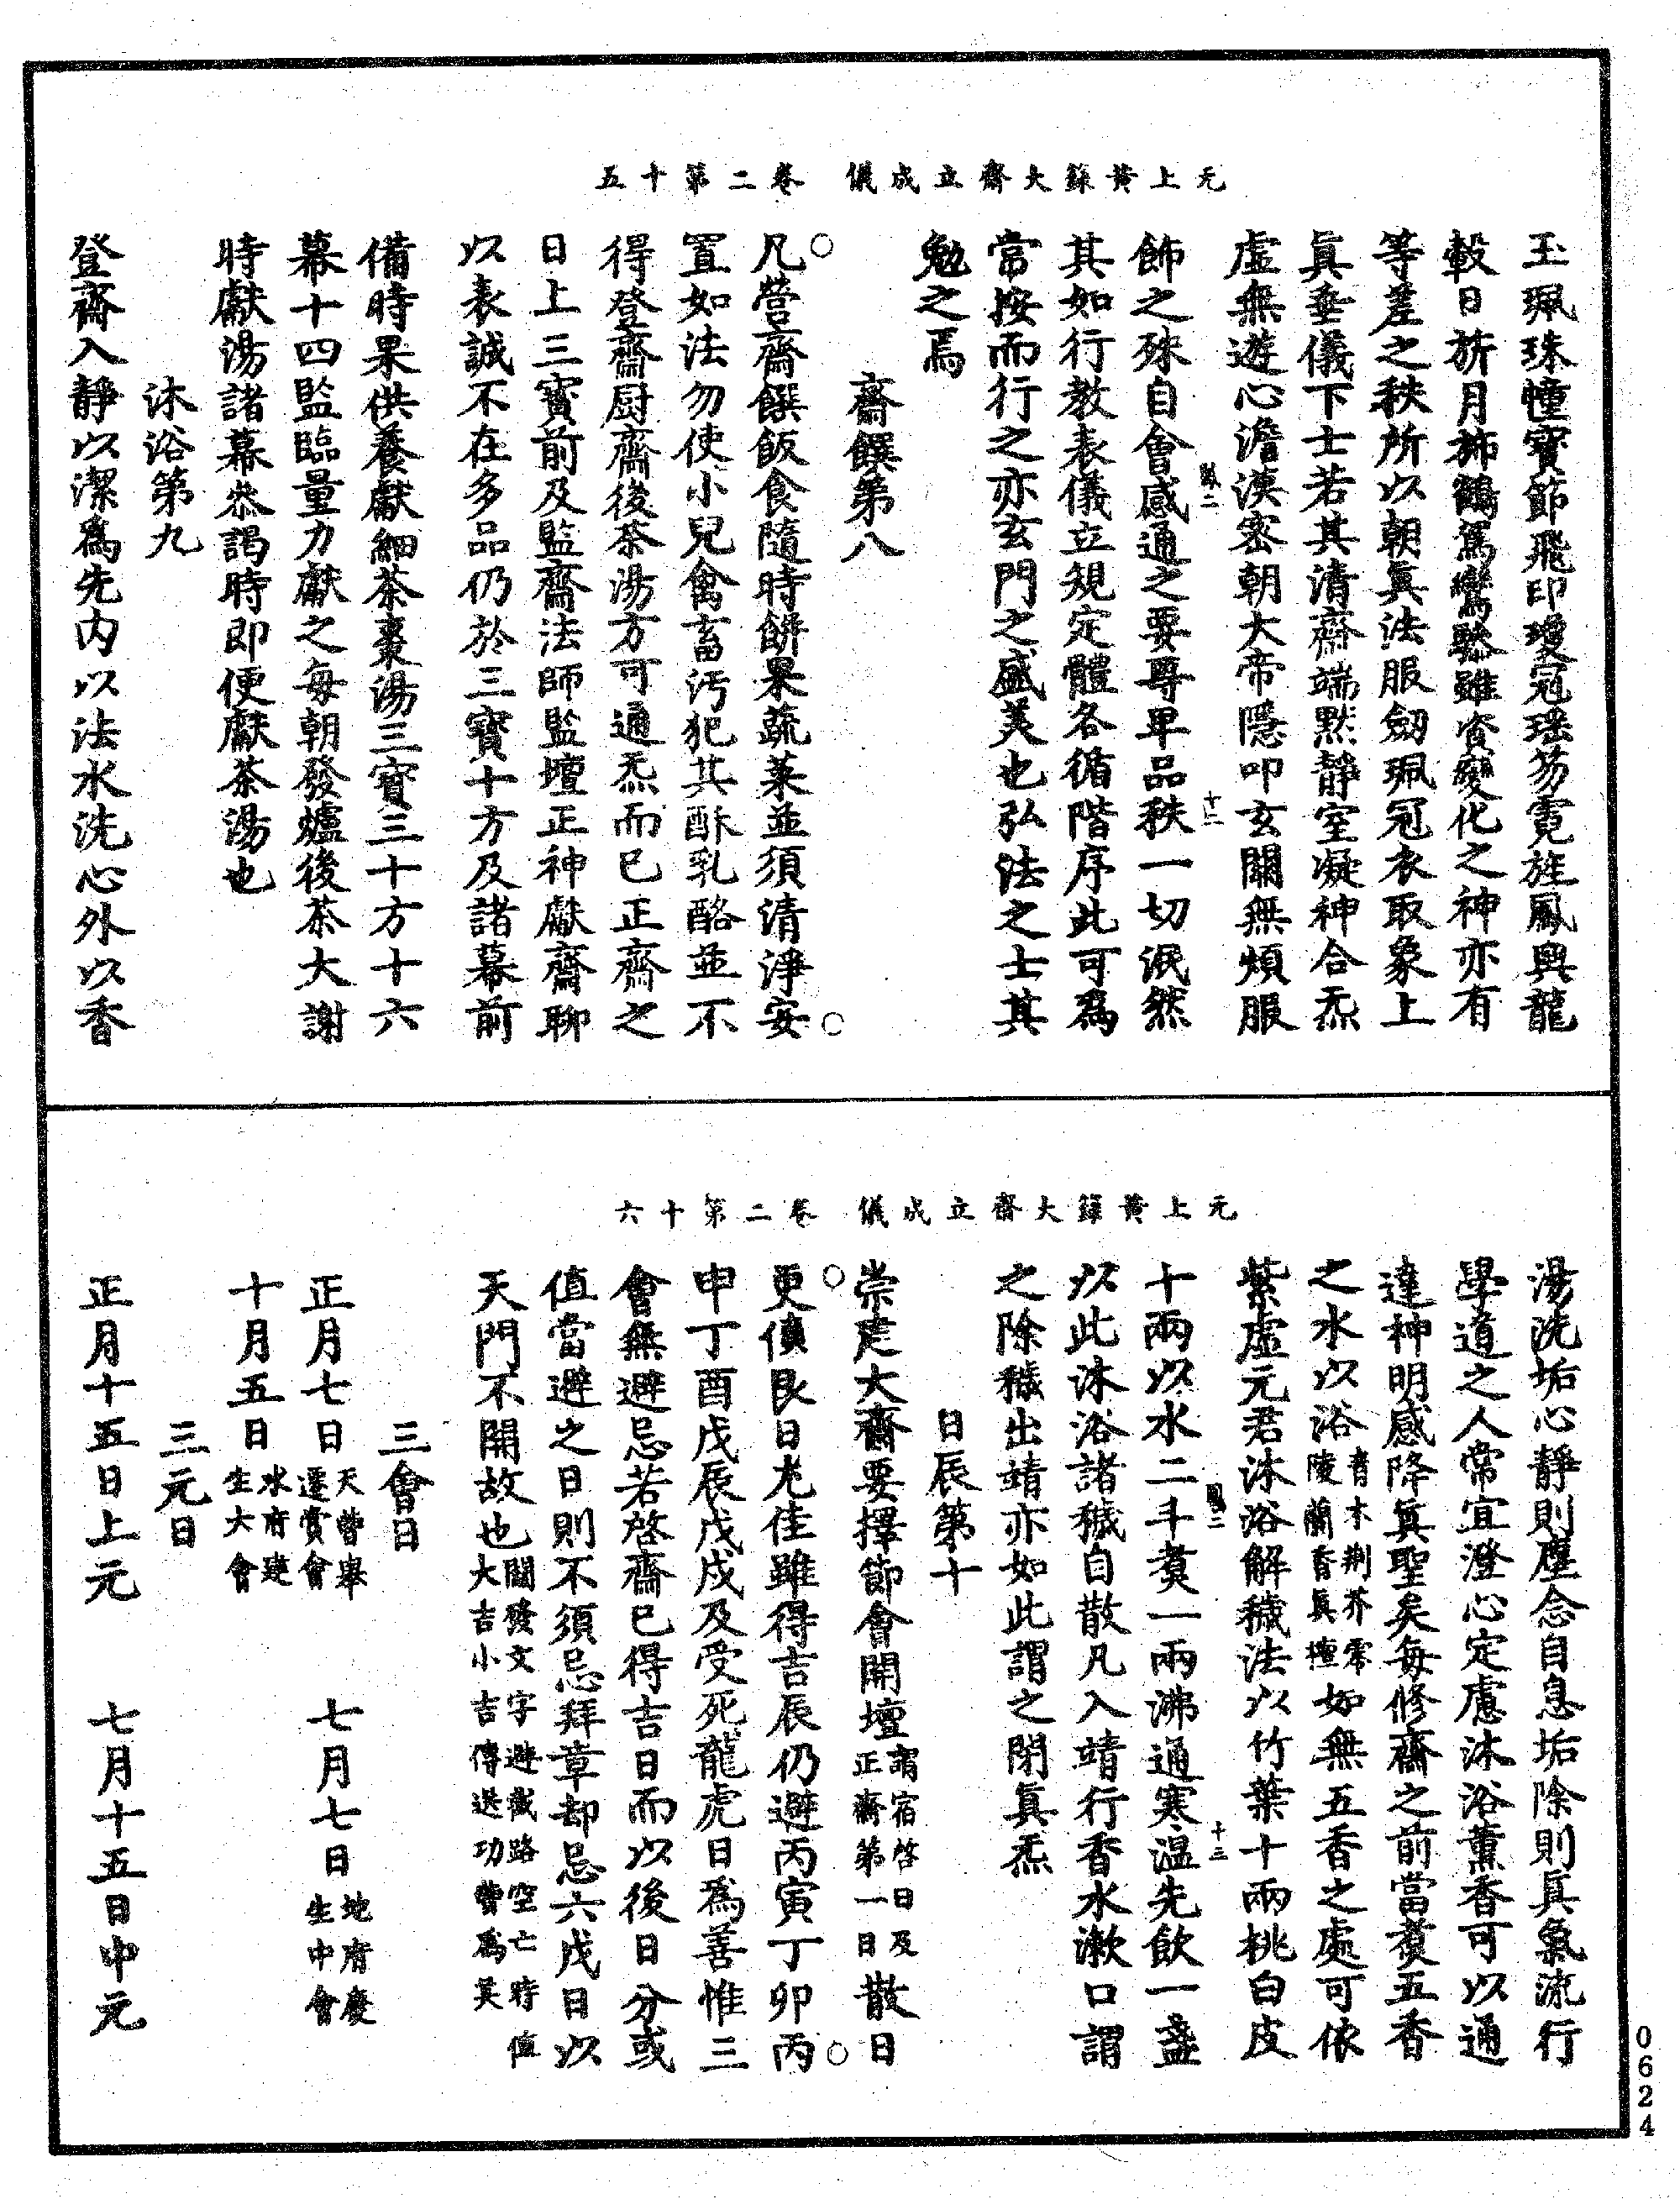 无上黃籙大齋立成儀 卷二第十五
玉珮珠幢寳節飛印瓊冠瑶笏霓旌鳳輿龍
轂日旂月旆鶴駕鸞驂雖資變化之神亦有
等差之秩所以朝眞法服劒珮冠衣取象上
眞垂儀下士若其清齋端黙靜室凝神合炁
虛無遊心澹漠密朝大帝隱叩玄關無煩服
鳳二 十二
飾之殊自會感通之要尊卑品秩一切泯然
其如行教表儀立規定體各循階序此可爲
常按而行之亦玄門之盛美也弘法之士其
勉之焉
齋饌第八
凡營齋饌飯食隨時餅果蔬菜並須清淨安
置如法勿使小兒禽畜汚犯其酥乳酪並不
得登齋厨齋後茶湯方可通炁而已正齋之
日上三寳前及監齋法師監壇正神獻齋聊
以表誠不在多品仍於三寳十方及諸幕前
備時果供養獻細茶棗湯三寳三十方十六
幕十四監臨量力獻之每朝發爐後茶大謝
時獻湯諸幕恭謁時即便獻茶湯也
沐浴第九
登齋入靜以潔爲先内以法水洗心外以香
无上黃籙大齋立成儀 卷二第十六
湯洗垢心靜則塵念自息垢除則眞氣流行
學道之人常宜澄心定慮沐浴薰香可以通
達神明感降眞聖矣每修齋之前當煑五香
之水以浴青木荆芥零陵蘭香眞檀如無五香之處可依
紫虛元君沐浴解穢法以竹葉十兩桃白皮
鳳二 十三
十兩以水二斗煑一兩沸通寒温先飲一盞
以此沐浴諸穢自散凡入靖行香水漱口謂
之除穢出靖亦如此謂之閉眞炁
日辰第十
崇建大齋要擇節會開壇謂宿啓日及正齋第一日散日
更值良日尤佳雖得吉辰仍避丙寅丁卯丙
申丁酉戊辰戊戌及受死龍虎日爲善惟三
會無避忌若啓齋已得吉日而以後日分或
值當避之日則不須忌拜章却忌六戊日以
天門不開故也關發文字避截路空亡時值大吉小吉傳送功曹爲美
三會日
正月七日天曹舉遷賞會 七月七日地府慶生中會
十月五日水府建生大會
三元日
正月十五日上元 七月十五日中元
0624